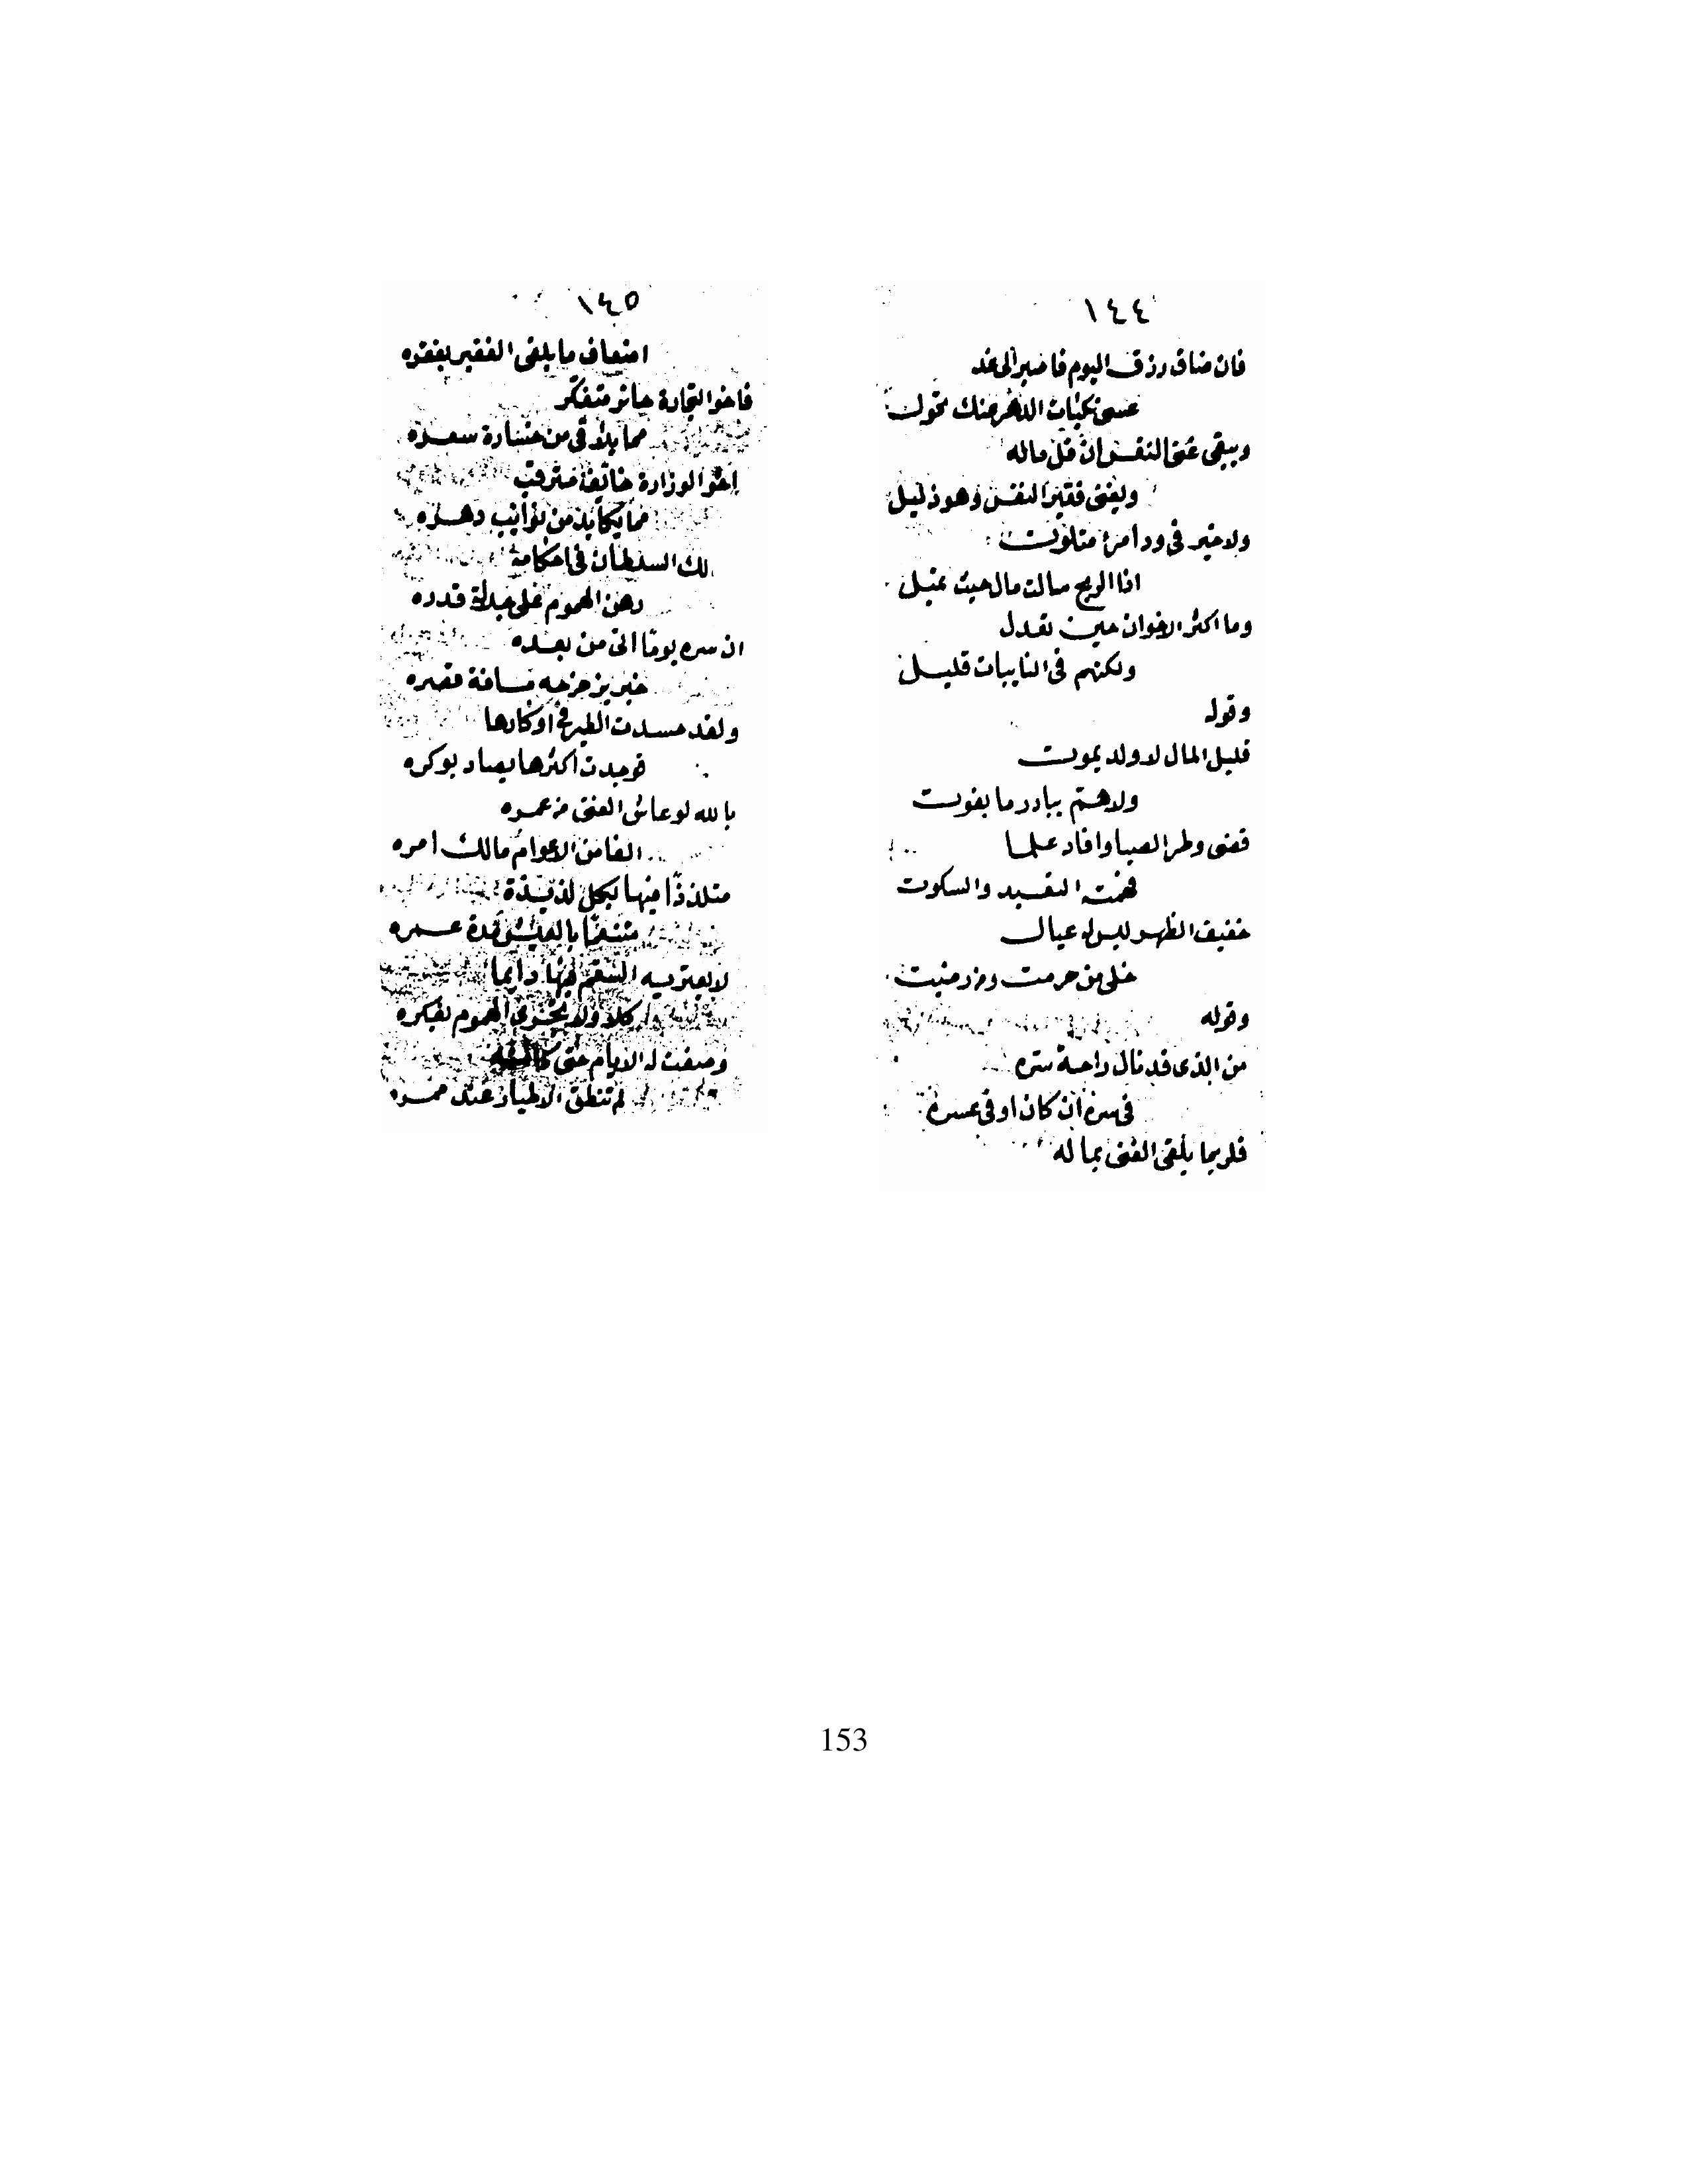 ١٤٤
فان ضاق رزق اليوم فاصبر الى غد
عسى نكبات الدهر عنك تحول
ويبقى غنى النفس ان قل ماله
ويغنى فقير النفس وهو ذليل
ولا خير فى ود امرئ متلون
اذا الريح مالت مال حيث تميل
وما اكثر الاخوان حين تعدل
ولكنهم فى النايبات قليل
وقوله
قليل المال لا ولد يموت
ولا هم يبادر ما يفوت
قضى وطر الصبا وافاد علما
فهمته التفيد والسكوت
خفيف الظهر ليس له عيال
خلى من حرمت ومن دهيت
وقوله
من الذى قد نال راحة سره
فى يسره ان كان او فى عسره
فلربما يلقى الغنى بما له
١٤٥
اضعاف ما يلقى الفقير بفقره
فاخو التجارة حائر متفكر
مما يلاقى من خسارة سعره
اخو الوزارة خائف مترقب
مما يكابد من نوائب دهره
لك السلطان فى احكامه
رهن الهموم على جلالة قدره
ان سره يوما اتى من بعده
خبر يزحزحه مسافة قصره
ولقد حسدت الطير فى اوكارها
فوجدت اكثرها يصاد بوكره
بالله لو عاش الفتى من عمره
الفا من الاعوام مالك امره
متلذذا فيها بكل لذيذة
متنعما بالعيش مدة عمره
لا يعتريه السقم فيها دايما
كلا ولا تجرى الهموم بفكره
وصفت له الايام حتى
لم تنطق الاطيار عند ممره
153